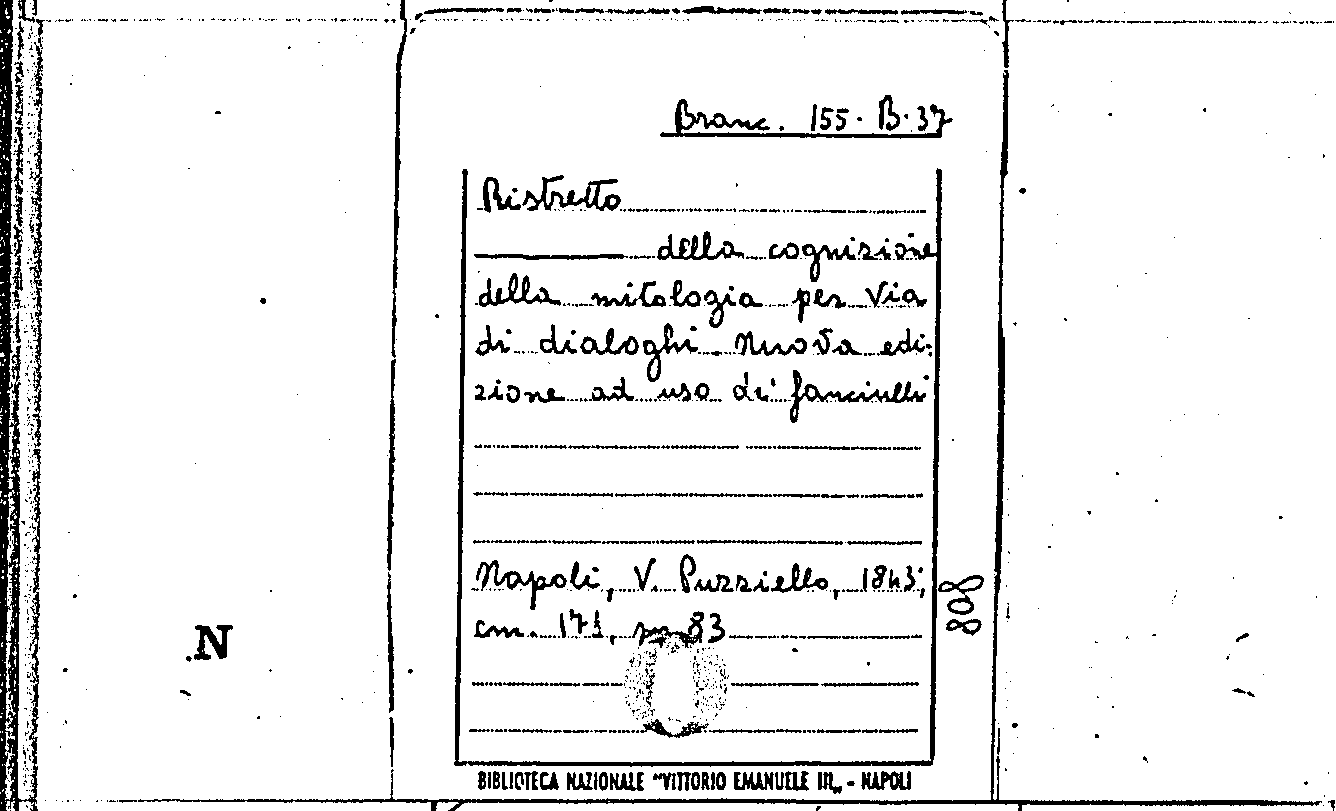 Branc. 155. B. 37
Ristretto
della cognizione
della mitologia per via
di dialoghi. Nuova edi-
zione ad uso de' fanciulli
Napoli, V. Puzziello, 1843;
cm. 17½, pp. 83
808
N
BIBLIOTECA NAZIONALE "VITTORIO EMANUELE III„ - NAPOLI